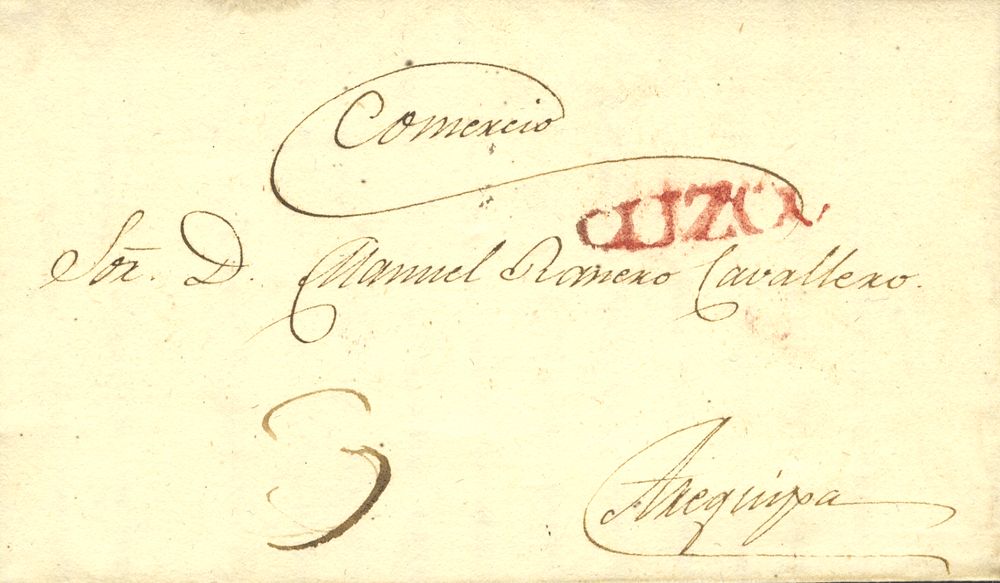 Comercio
CUZCO
Sor. D. Manuel Ranero Cavallero.
3
Arequipa